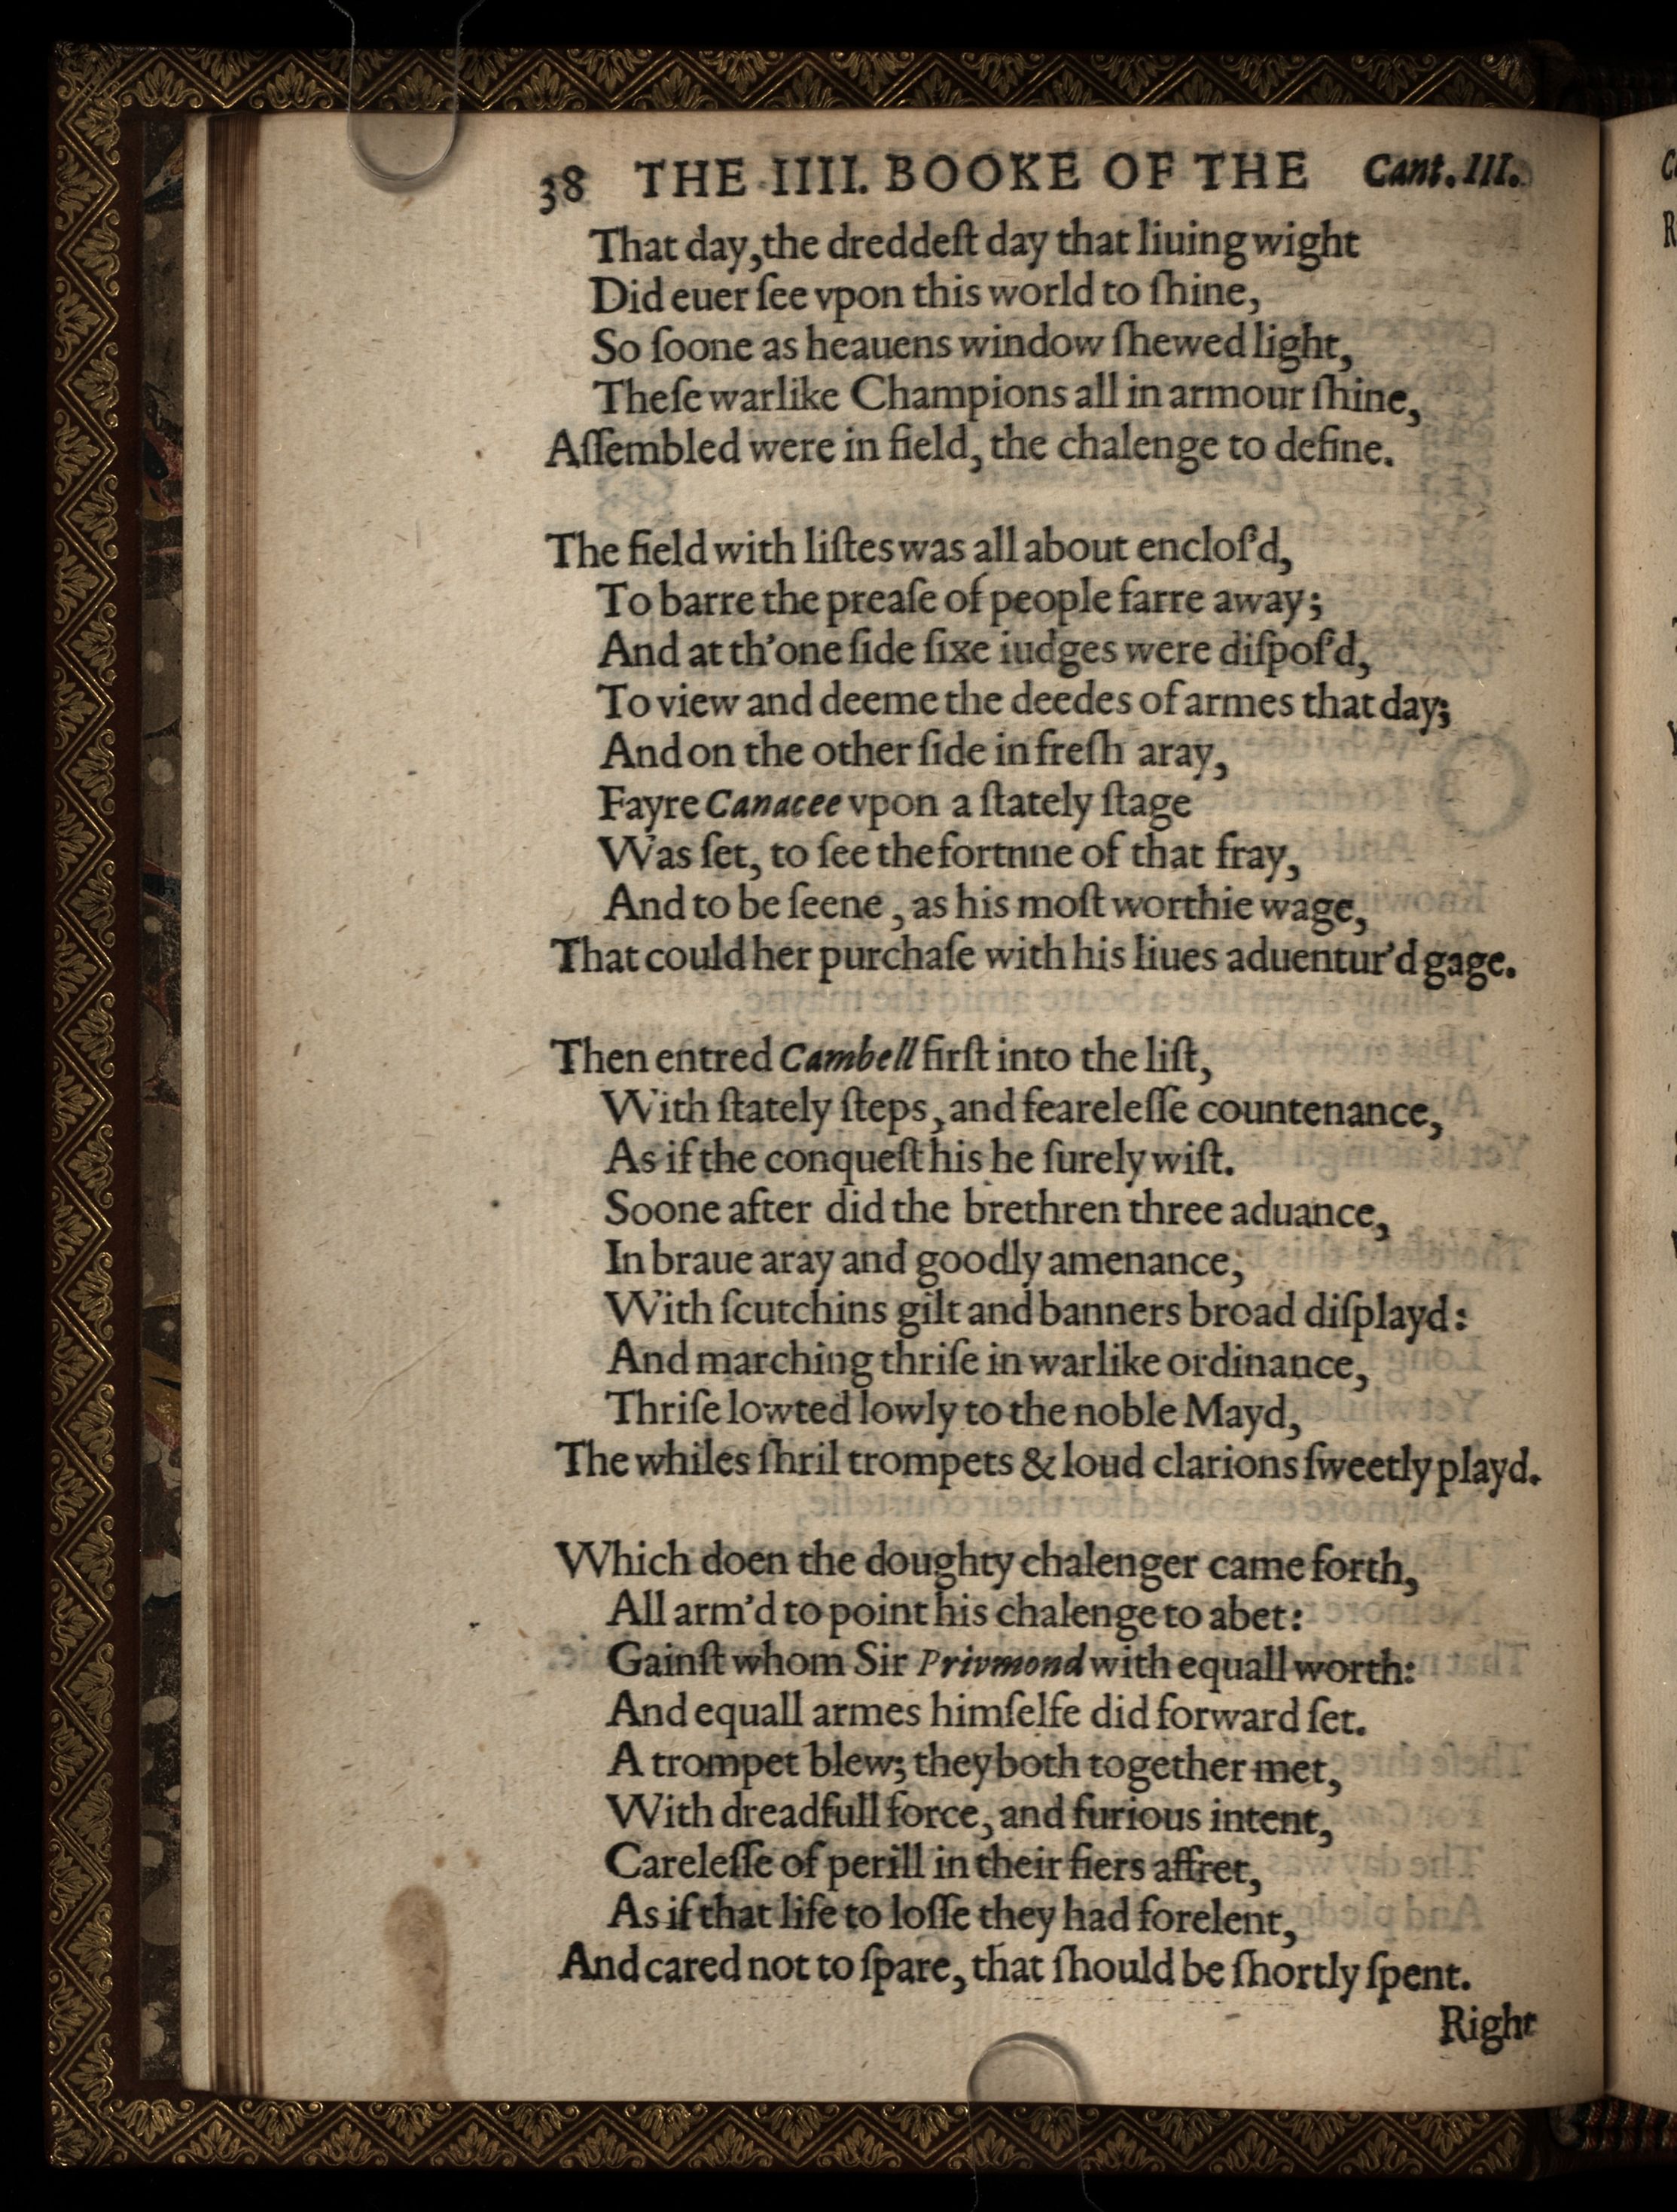 38 THE IIII. BOOKE OF THE Cant. III.
That day, the dreddeſt day that liuing wight
Did euer ſee vpon this world to ſhine,
So ſoone as heauens window ſhewed light,
Theſe warlike Champions all in armour ſhine,
Aſſembled were in field, the chalenge to define.
The field with liſtes was all about encloſ'd,
To barre the preaſe of people farre away;
And at th'one ſide ſixe iudges were diſpoſ'd,
To view and deeme the deedes of armes that day;
And on the other ſide in freſh aray,
Fayre Canacee vpon a ſtately ſtage
Was ſet, to ſee the fortnne of that fray,
And to be ſeene, as his moſt worthie wage,
That could her purchaſe with his liues aduentur'd gage.
Then entred Cambell firſt into the liſt,
With ſtately ſteps, and feareleſſe countenance,
As if the conqueſt his he ſurely wiſt.
Soone after did the brethren three aduance,
In braue aray and goodly amenance,
With ſcutchins gilt and banners broad diſplayd:
And marching thriſe in warlike ordinance,
Thriſe lowted lowly to the noble Mayd,
The whiles ſhril trompets & loud clarions ſweetly playd.
Which doen the doughty chalenger came forth,
All arm'd to point his chalenge to abet:
Gainſt whom Sir Privmond with equall worth:
And equall armes himſelfe did forward ſet.
A trompet blew; they both together met,
With dreadfull force, and furious intent,
Careleſſe of perill in their fiers affret,
As if that life to loſſe they had forelent,
And cared not to ſpare, that ſhould be ſhortly ſpent.
Right